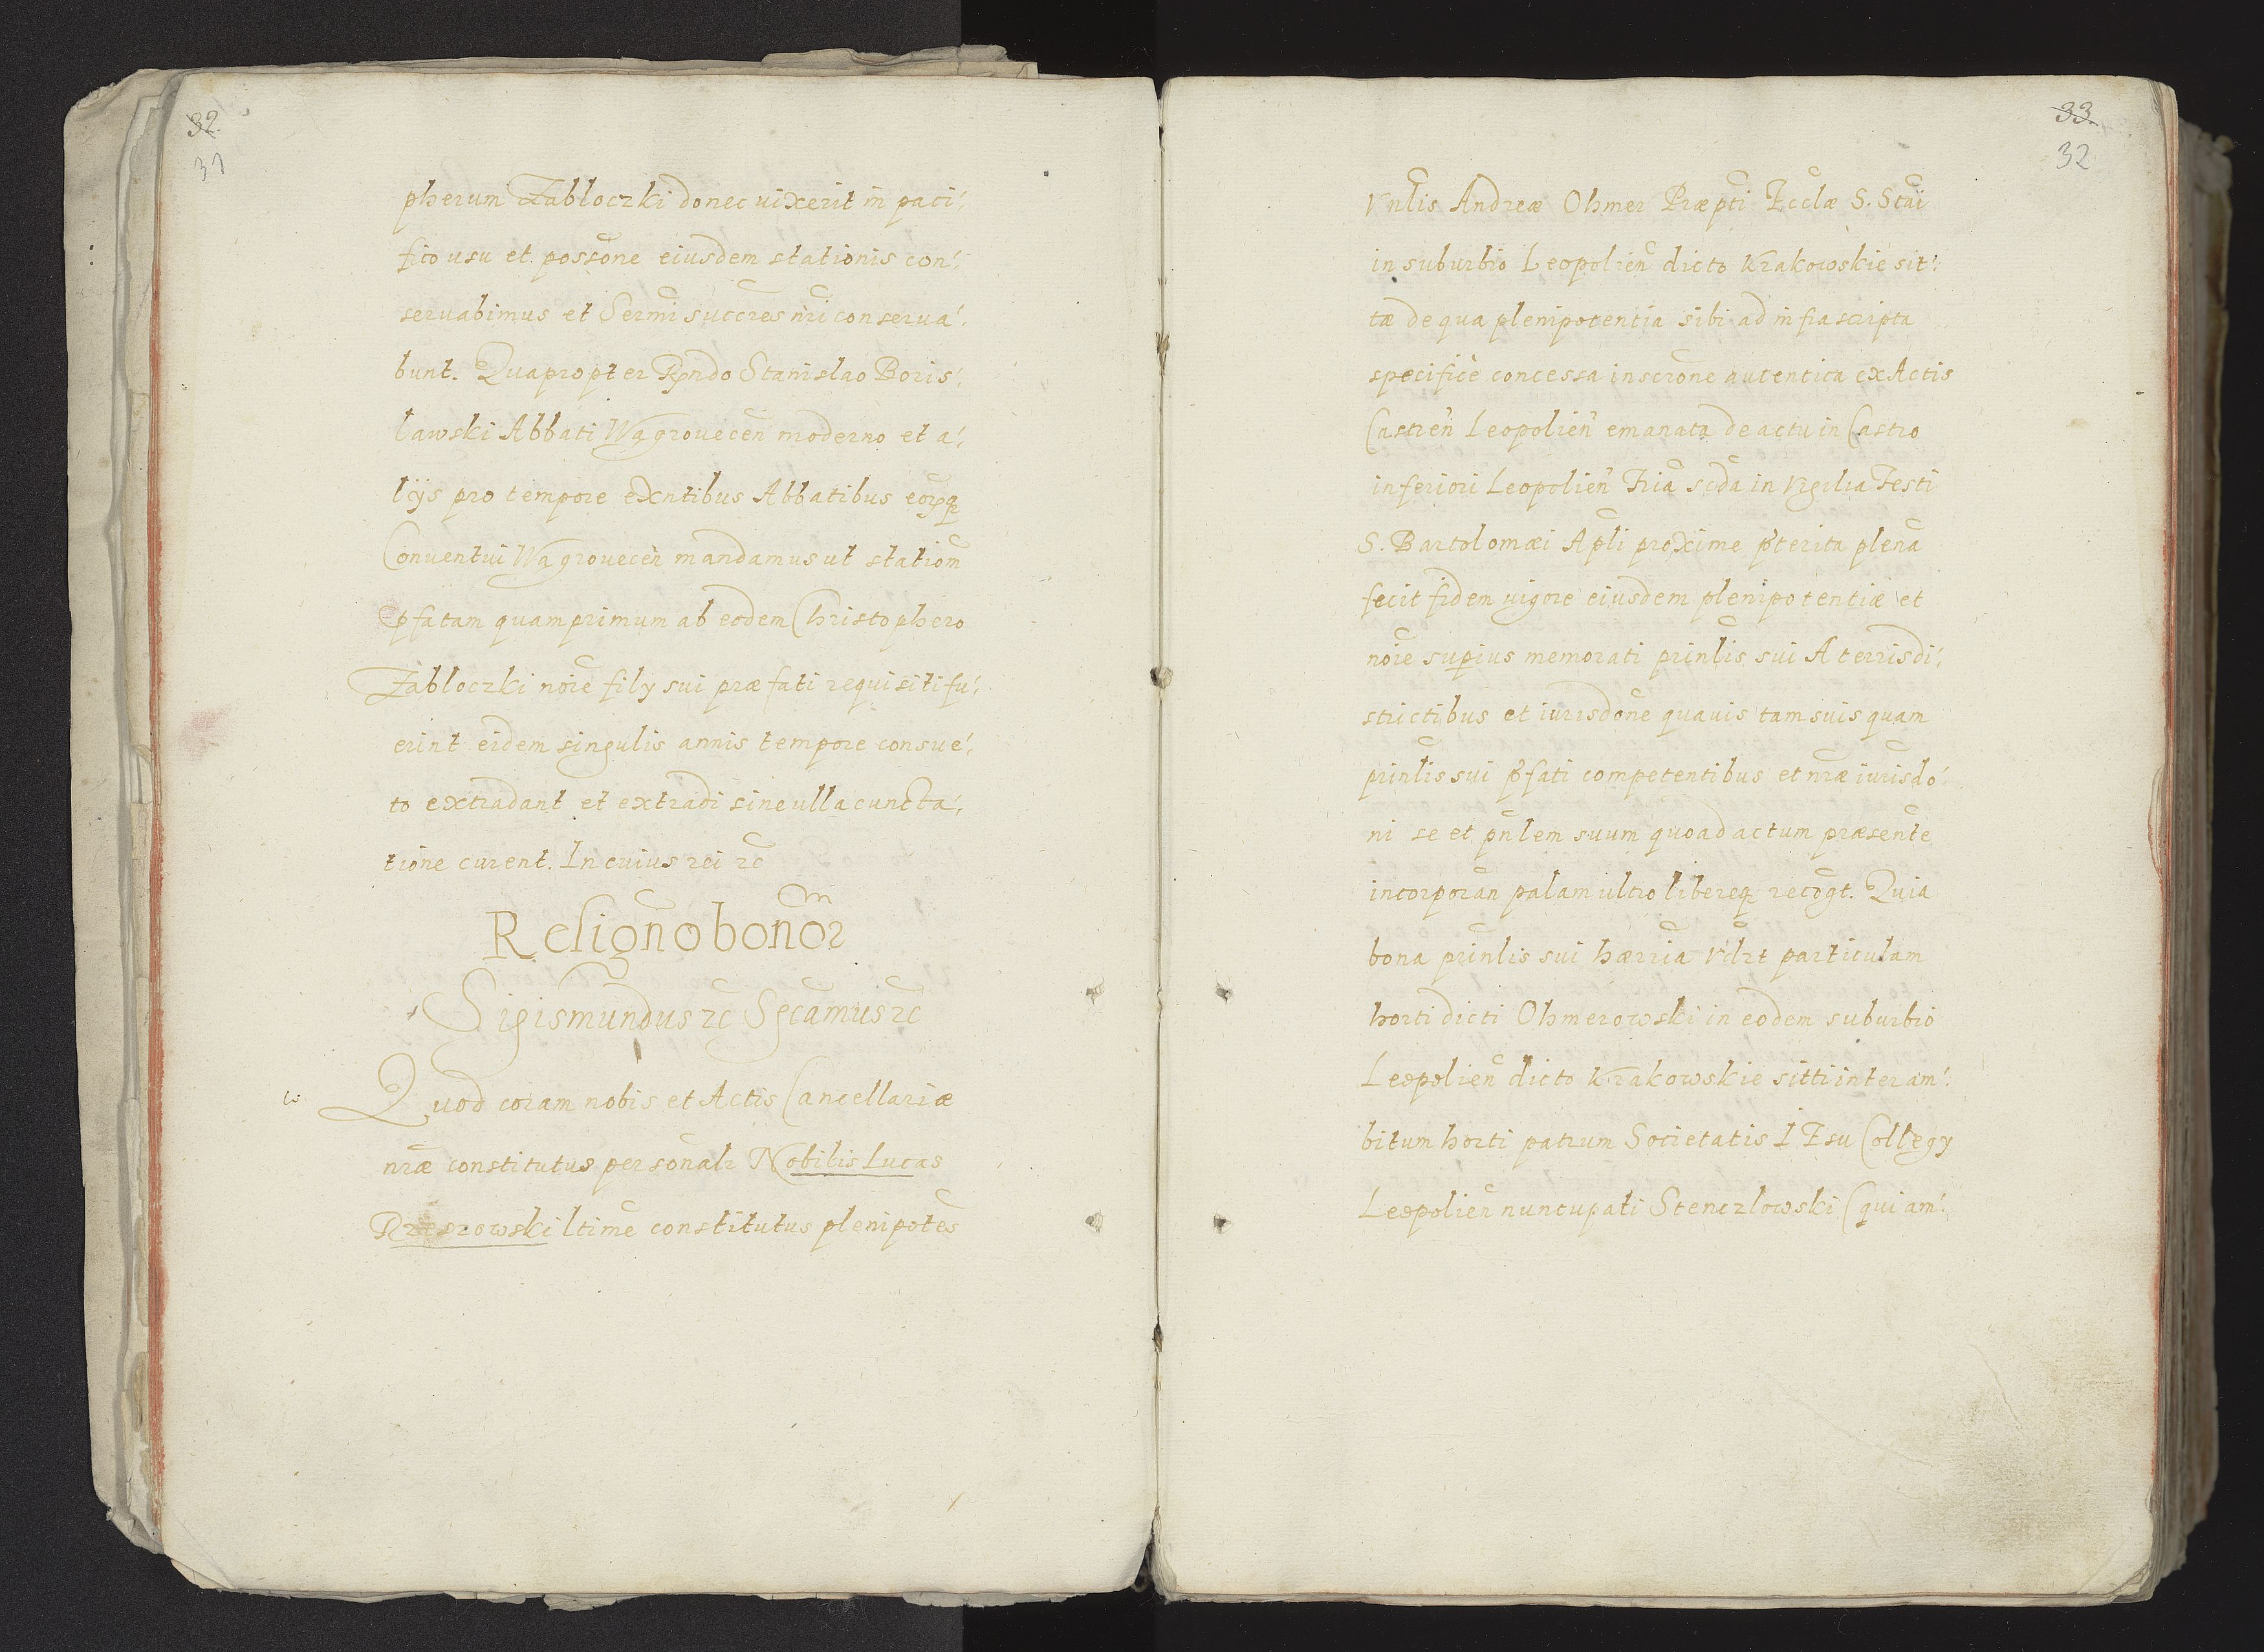 32.
31
pherum Zabloczki donec uixerit in paci,
fico usu et possõne eiusdem stationis con,
seruabimus et Sermi succres nri conserua,
bunt. Quapropter Rndo Stanislao Boris,
lawski Abbati Wągrouecen moderno et a,
lijs pro tempore exntibus Abbatibus eorqz
Conuentui Wągrouecen mandamus ut station
pfatam quamprimum ab eodem Christophero
Zabloczki noie filÿ sui præfati requisiti fu,
erint eidem singulis annis tempore consue,
to extradant et extradi sine ulla cuncta,
tione curent. In cuius rei ꝛc
Religno bonoꝛ
Sigismundus ꝛc Sgcamus ꝛc
Quod coram nobis et Actis Cancellariæ
nræ constitutus personalr Nobilis Lucas
ltime constitutus plenipotes
33.
32
Vnlis Andreæ Ohmer Præpti Ecclæ S. Stai
in suburbio Leopolien dicto Krakowskie sit,
tæ de qua plenipotentia sibi ad infrascripta
specificè concessa inscrone autentica ex Actis
Castren Leopolien emanata de actu in Castro
inferiori Leopolien Fria scda in vigilia Festi
S. Bartolomæi Apli proxime pterita plena
fecit fidem uigore eiusdem plenipotentiæ et
noie supius memorati prinlis sui A terris di,
strictibus et iurisdone quauis tam suis quam
prinlis sui pfati competentibus et nræ iurisdo,
ni se et pnlem suum quoad actum præsente
incorporan palam ultro libereqz recogt. Quia
bona prinlis sui hærria vdlt particulam
horti dicti Ohmerowski in eodem suburbio
Leopolien dicto Krakowskie sitti inter am,
bitum horti patrum Societatis IEsu Collegÿ
Leopolien nuncupati Stenczlowski (qui am,